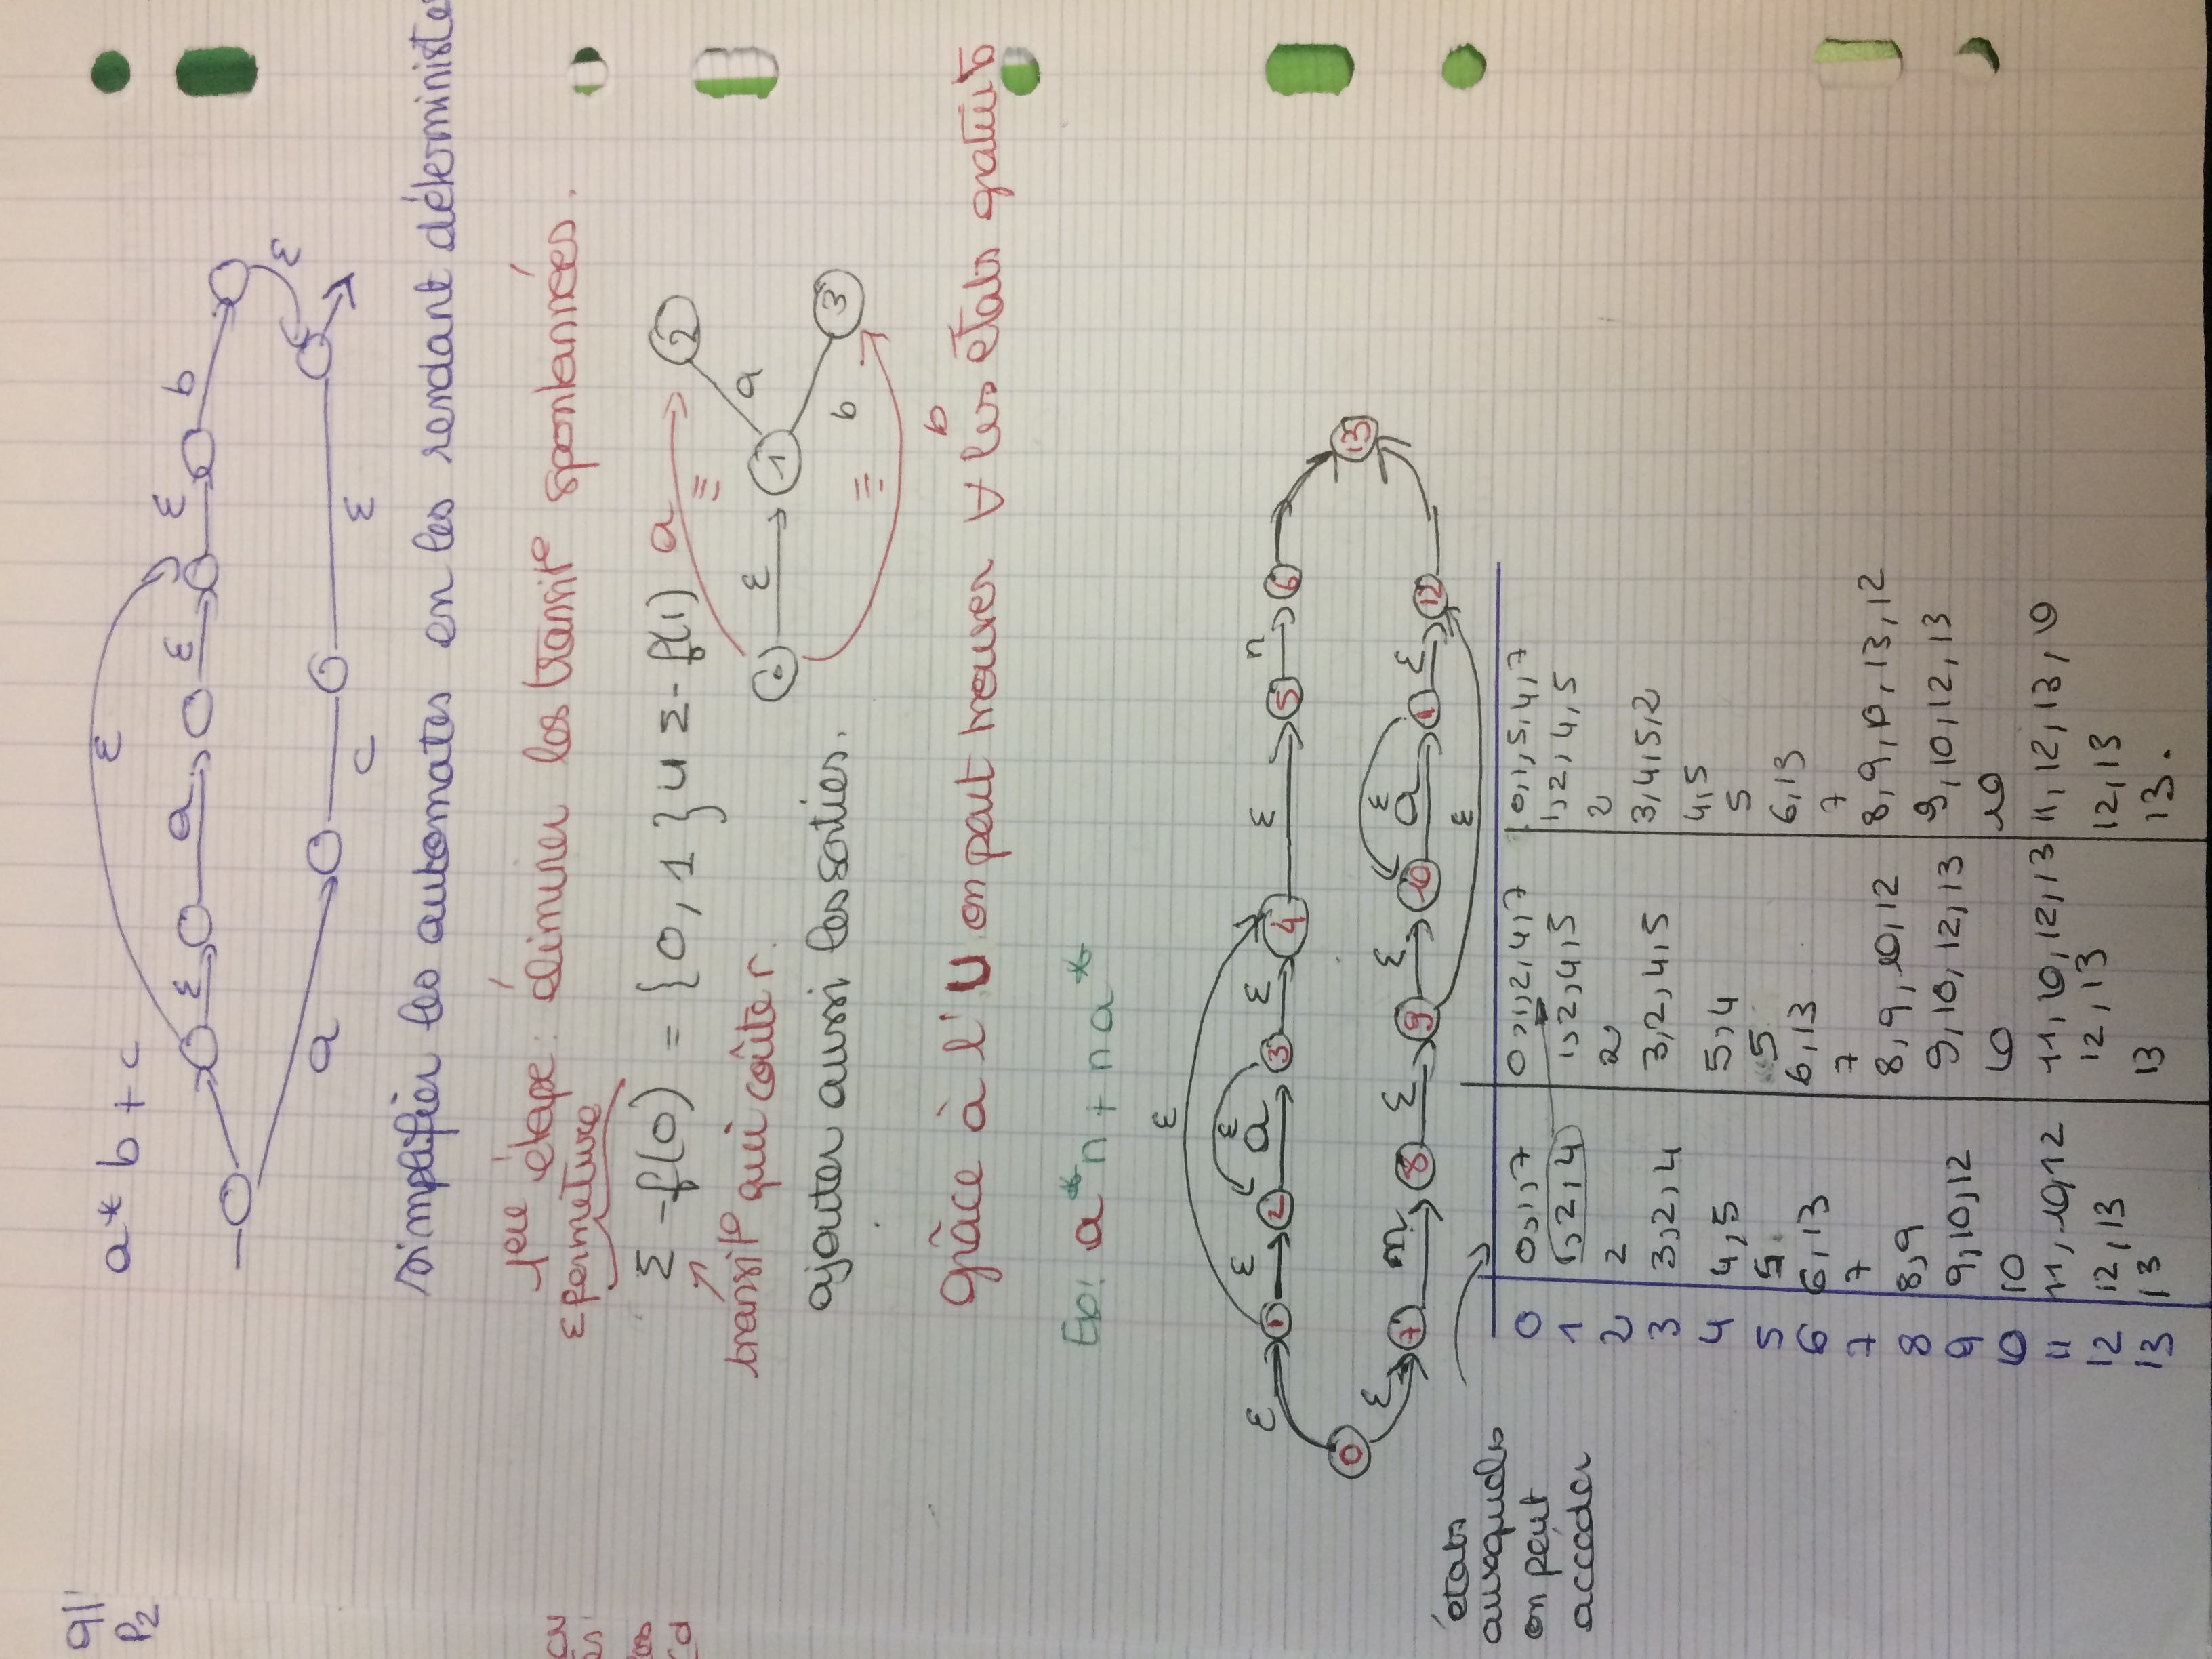 91
P2
a* b + c
ε
ε a ε ε b
ε
a c ε
simplifier les automates en les rendant déterministes
1ere étape: éliminer les transit° spontannées.
ε fermeture
Σ -f(0) = {0, 1} U Σ- f(1)
transit° qui coûte r.
ajouter aussi les sorties.
a 2
ε 1 a
b 3
b
grâce à l'U on peut trouver ∀ les états gratuits
Ex: a*n + na*
ε
ε ε ε a ε ε n
1 2 3 4 5 6
0 13
ε n ε ε ε a ε
7 8 9 10 11 12
ε
états
auxquels
on peut
accéder
0 0,1,7 0,1,2,4,7 0,1,5,4,7
1 1,2,4 1,2,4,5 1,2,4,5
2 2 2 2
3 3,2,4 3,2,4,5 3,4,5,2
4 4,5 5,4 4,5
5 5 5 5
6 6,13 6,13 6,13
7 7 7 7
8 8,9 8,9,10,12 8,9,10,13,12
9 9,10,12 9,10,12,13 9,10,12,13
10 10 10 10
11 11,10,12 11,10,12,13 11,12,13,10
12 12,13 12,13 12,13
13 13 13 13.